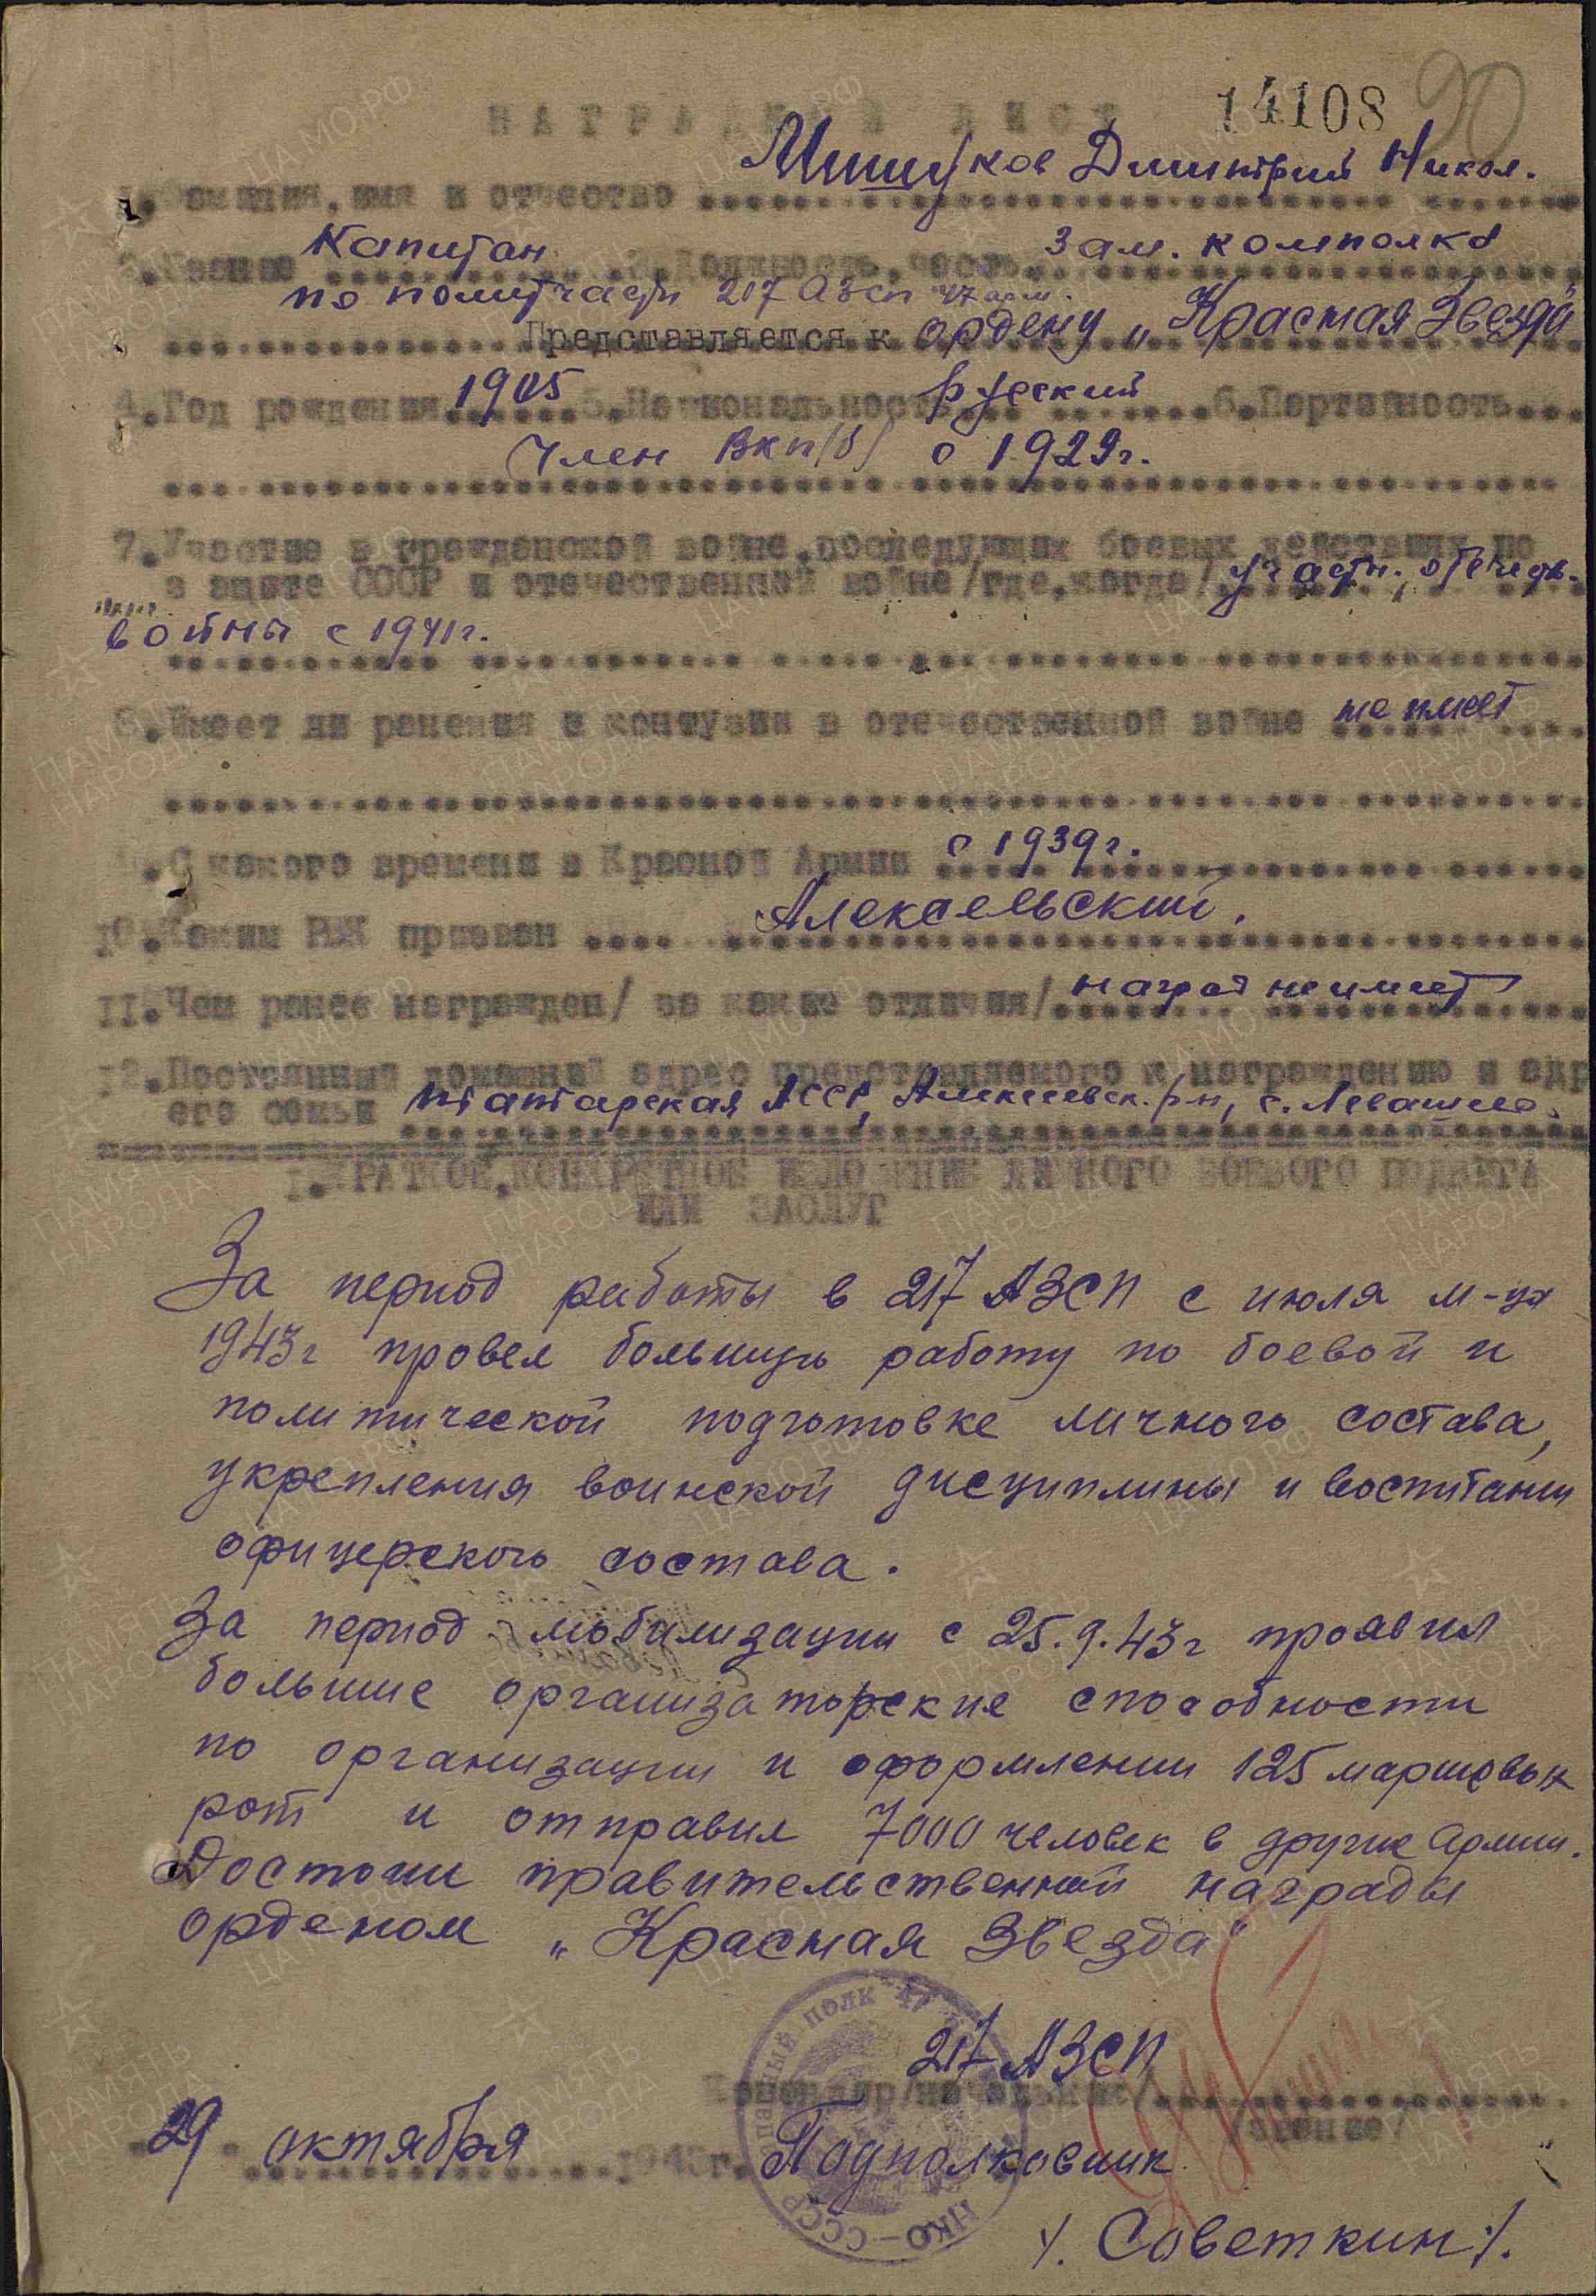 14108 90
НАГРАДНОЙ ЛИСТ
1. Фамилия, имя и отчество Мишуков Дмитрий Никол.
2. Звание Капитан 3. Должность, часть Зам. комполка
по политчасти 217 АЗСП 47 арм.
Представляется к ордену „Красная Звезда"
4. Год рождения 1905 5. Национальность русский 6. Партийность
Член ВКП(б) с 1929г.
7. Участие в гражданской войне, последующих боевых действиях по
защите СССР и отечественной войне /где, когда/ участн. отечеств.
войны с 1941г.
8. Имеет ли ранения и контузии в отечественной войне не имеет
9. С какого времени в Красной Армии с 1939г.
10. Каким РВК призван
11. Чем ранее награжден/ за какие отличия/ наград не имеет
12. Постоянный домашний адрес представляемого к награждению и адр
его семьи Татарская АССР, Алексеевск. р-н, с. Левашево.
I. КРАТКОЕ, КОНКРЕТНОЕ ИЗЛОЖЕНИЕ ЛИЧНОГО БОЕВОГО ПОДВИГА
ИЛИ ЗАСЛУГ
За период работы в 217 АЗСП с июля м-ца
1943г провел большую работу по боевой и
политической подготовке личного состава,
укрепления воинской дисциплины и воспитании
офицерского состава.
За период мобилизации с 25.9.43г проявил
большие организаторские способности
по организации и оформлении 125 маршовых
рот и отправил 7000 человек в другие Армии.
Достоин правительственной награды
орденом „Красная Звезда"
217 АЗСП
Командир/начальник/
29 октября 1943г. Подполковник
/. Советкин /.
НКО–СССР